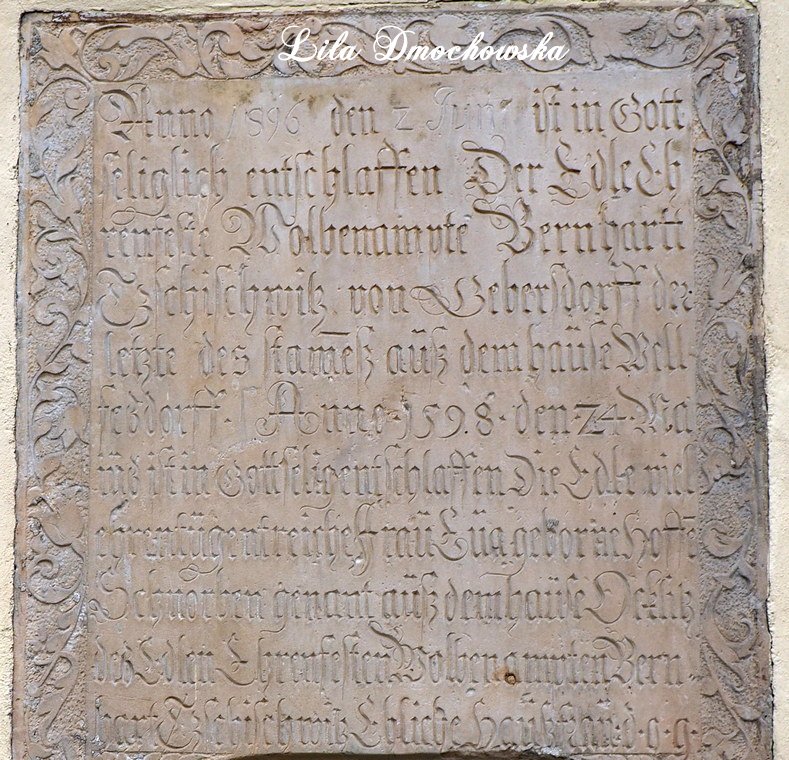 Lila Dmochowska
Anno 1896 den 2 Juny ist in Gott
seliglich entschlaffen Der Edle Eh
renfeste Wolbenampte Bernhartt
Tzschischwitz von Gebersdorff der
letzte des stam̄eß auß dem hause Well
feßdorff. Anno. 1598. den 24. Ma
ÿ ist in Gott selig entschlaffen Die Edle viel
ehrentügentreiche Fraü Eüa geborne Hoffe
Schnorben genant auß dem haüse Ocklitz
des Edlen Ehrenfesten Wolbenampten Bern
hart Tzschischwitz Ebliche Haußfraü. d. o. g.